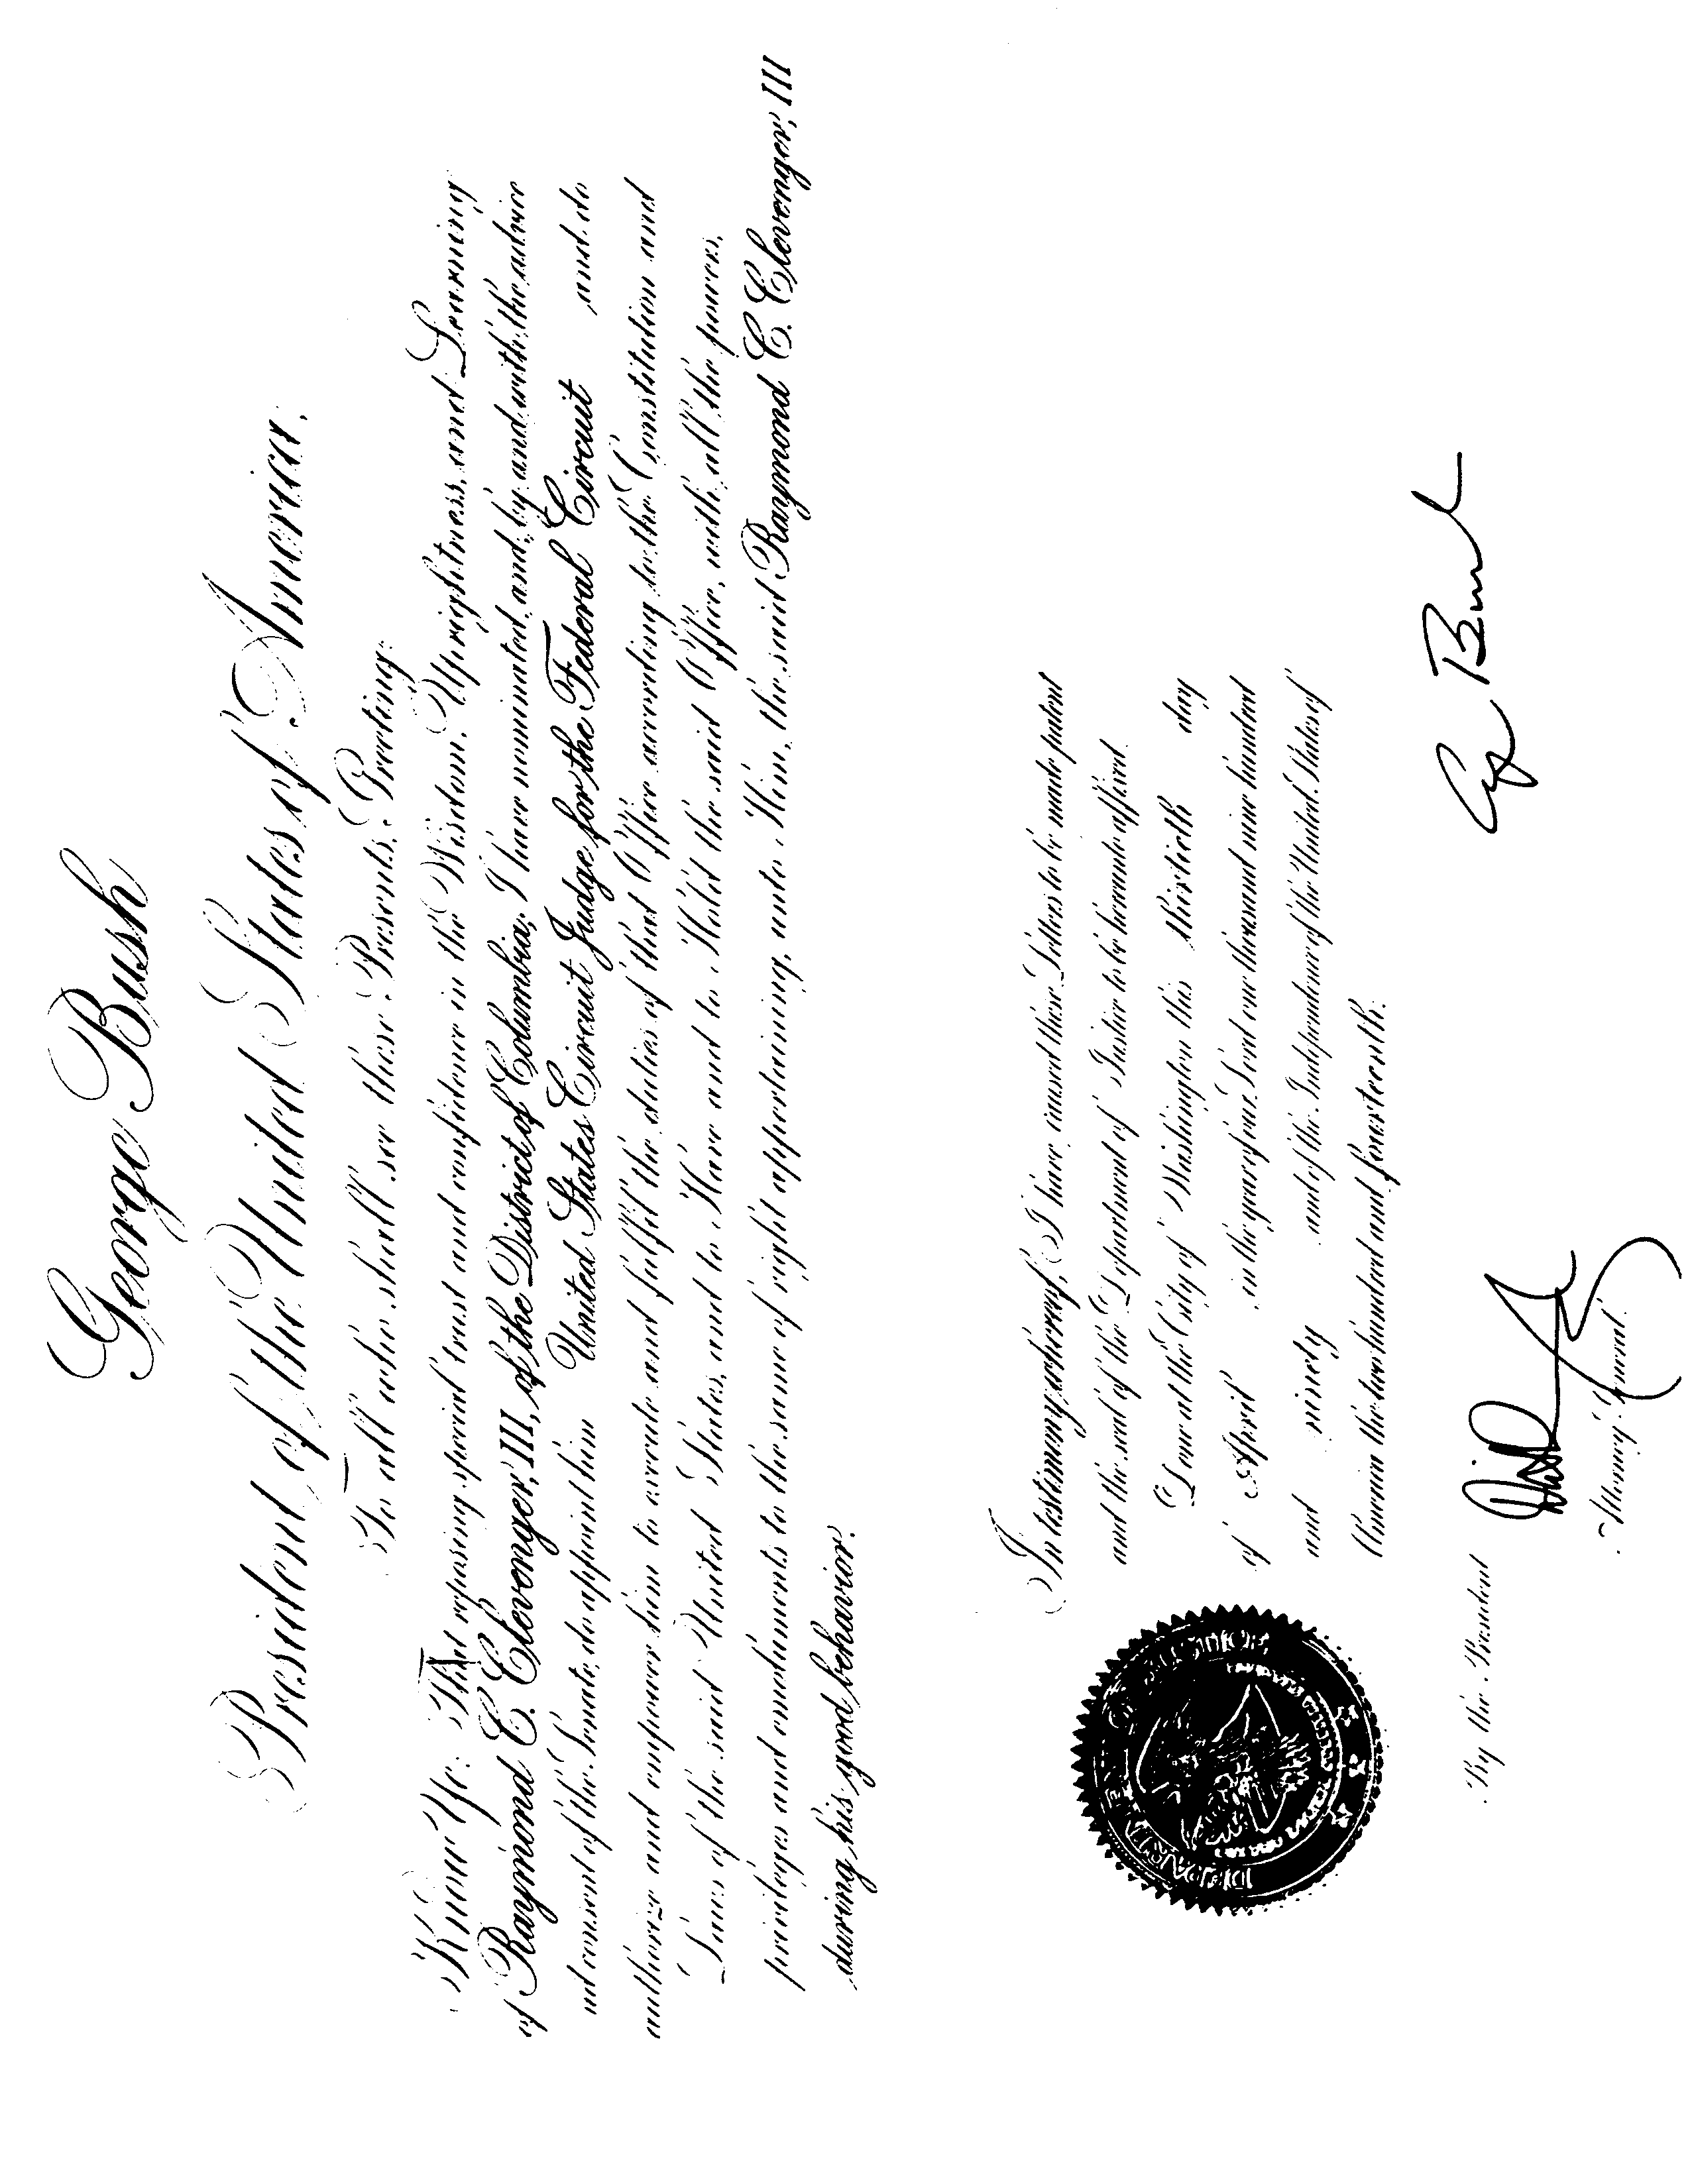 George Bush
President of the United States of America.
To all who shall see these Presents, Greeting:
Know Ye: That reposing special trust and confidence in the Wisdom, Uprightness, and Learning
of Raymond C. Clevenger, III, of the District of Columbia, I have nominated, and, by and with the advice
and consent of the Senate, do appoint him United States Circuit Judge for the Federal Circuit and do
authorize and empower him to execute and fulfil the duties of that Office according to the Constitution and
Laws of the said United States, and to Have and to Hold the said Office, with all the powers,
privileges and emoluments to the same of right appertaining, unto Him, the said Raymond C. Clevenger, III
during his good behavior.
In testimony whereof, I have caused these Letters to be made patent
and the seal of the Department of Justice to be hereunto affixed.
Done at the City of Washington this thirtieth day
of April in the year of our Lord one thousand nine hundred
and ninety and of the Independence of the United States of
America the two hundred and fourteenth.
DEPARTMENT OF JUSTICE
G Bush
By the President
Attorney General